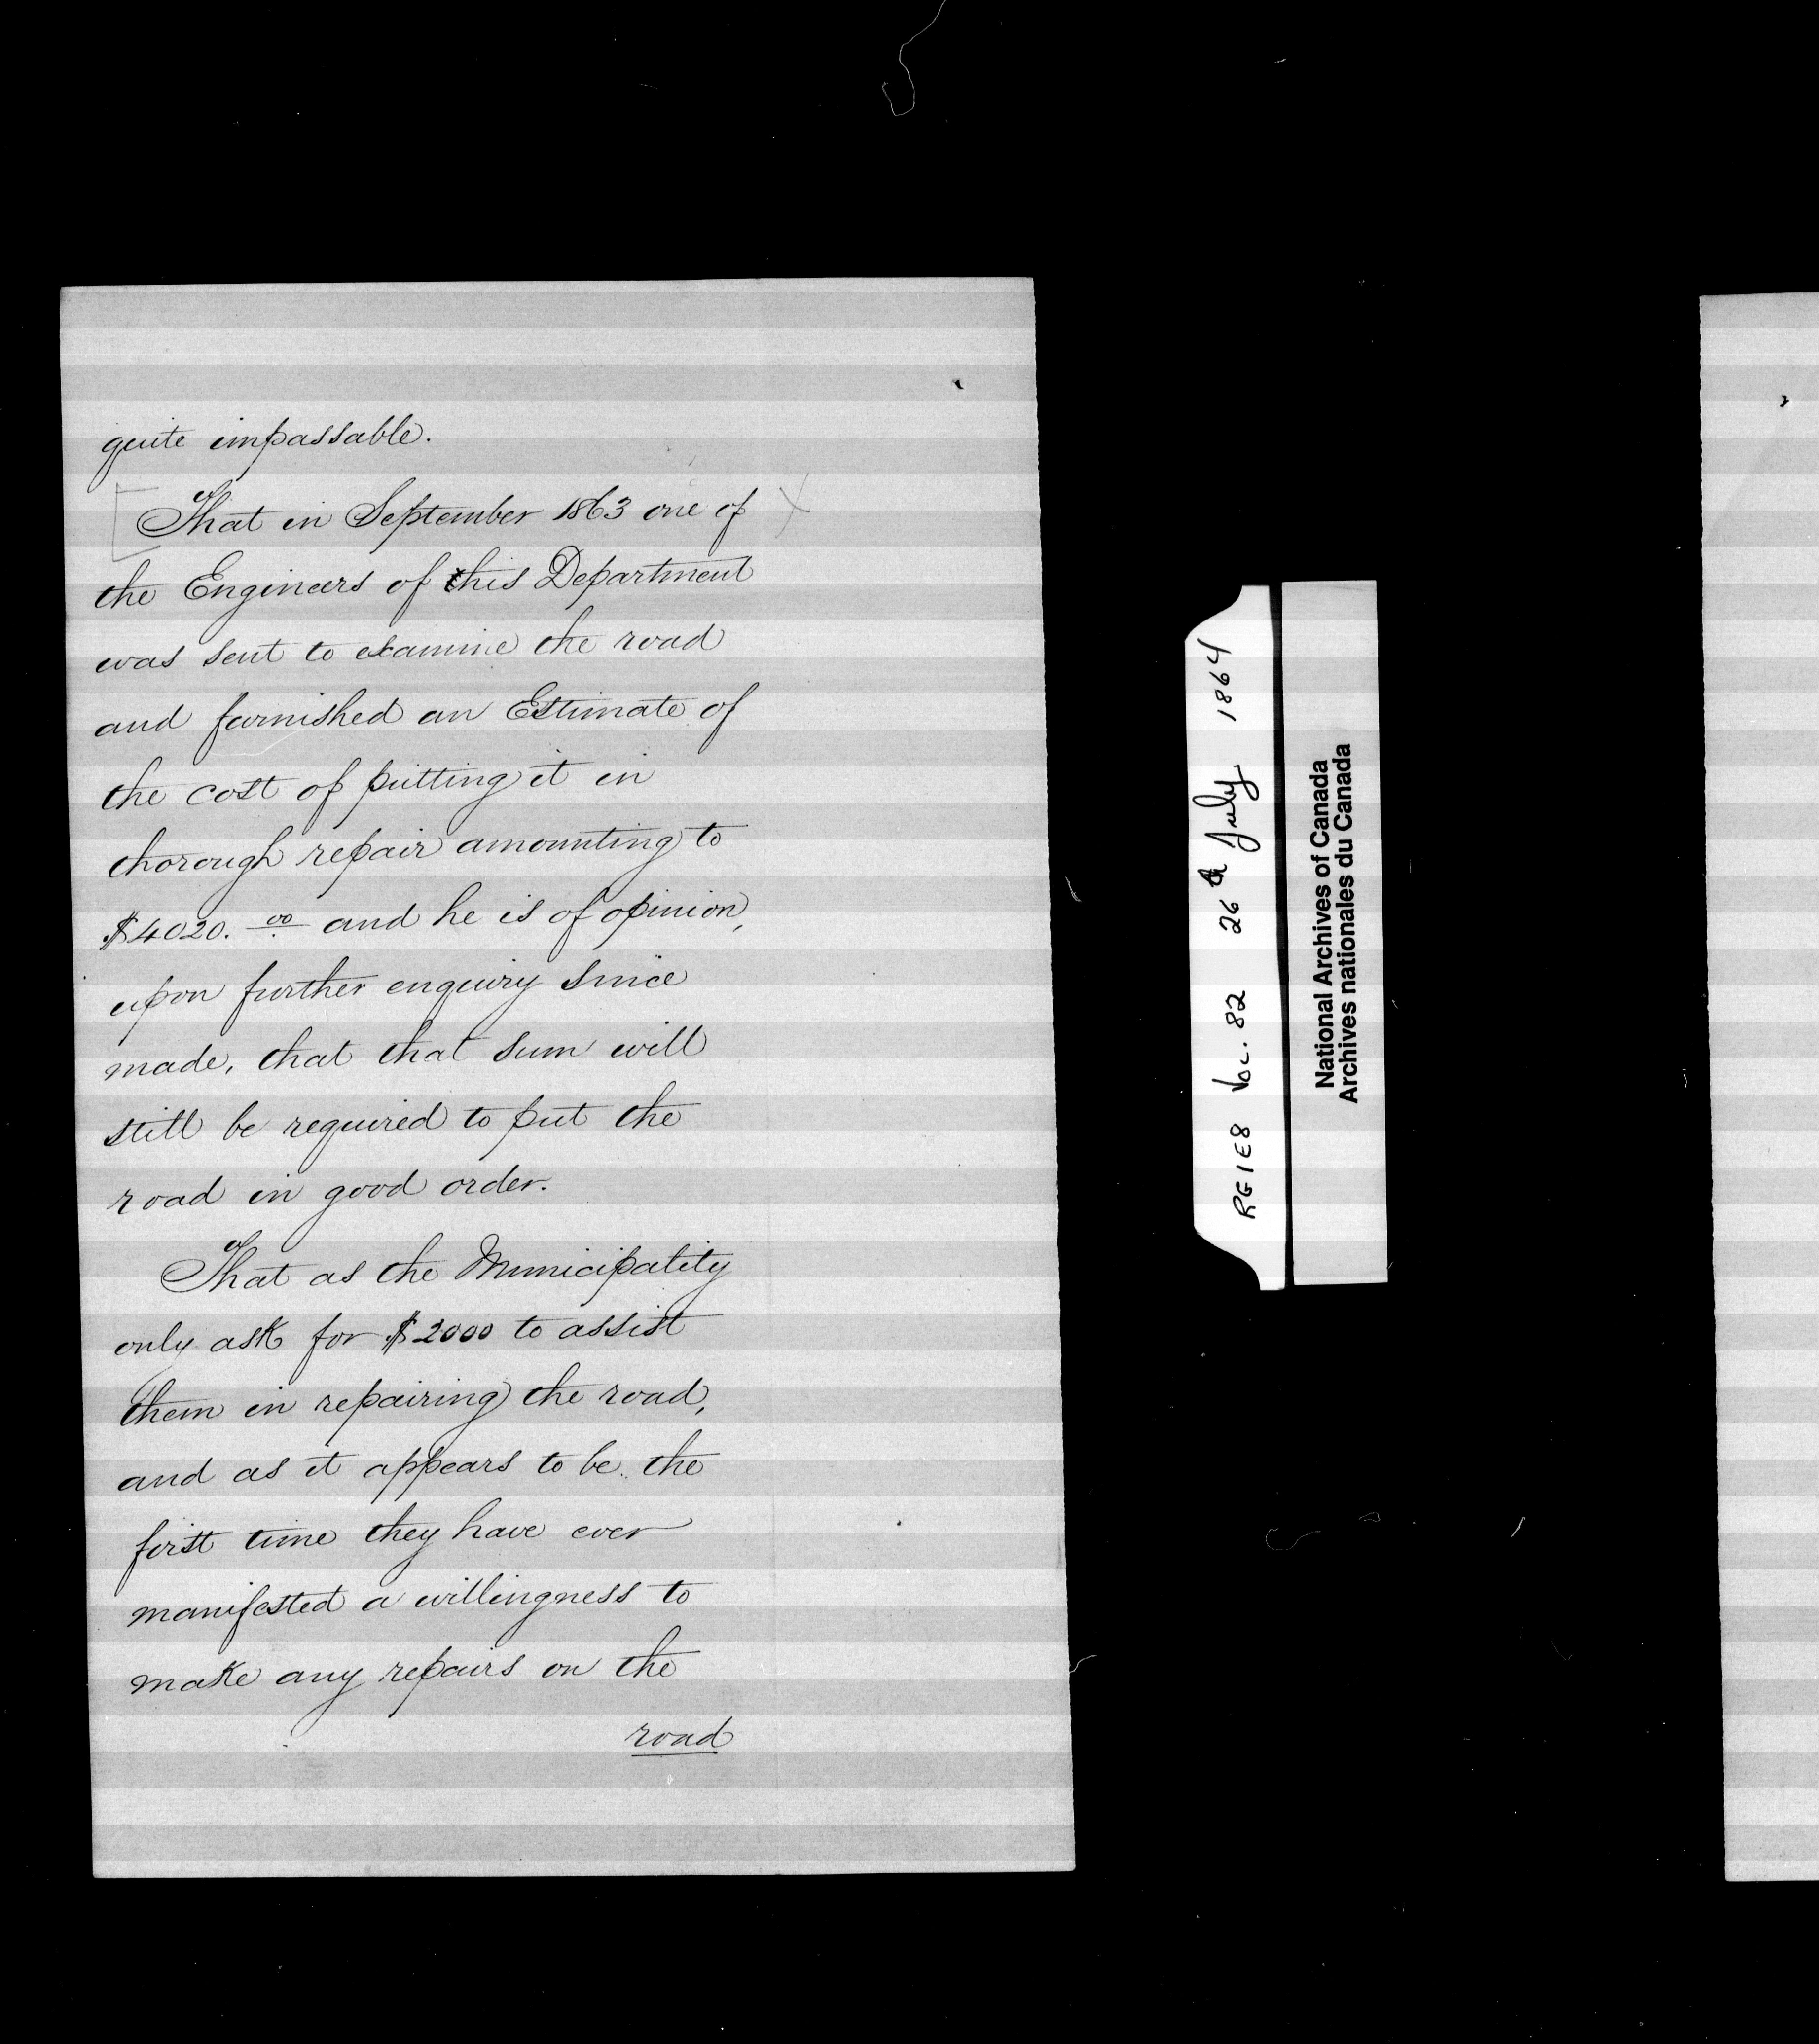 quite impassable.
That in September 1863 one of
the Engineers of this Department
was sent to examine the road
and furnished an Estimate of
the cost of putting it in
thorough repair amounting to
$4020. 00 and he is of opinion,
upon further enquiry since
made, that that sum will
still be required to put the
road in good order.
That as the Municipality
only ask for $2000 to assist
them in repairing the road,
and as it appears to be the
first time they have ever
manifested a willingness to
make any repairs on the
road
RG1E8 Vol. 82 26th July 1864
National Archives of Canada
Archives nationales du Canada